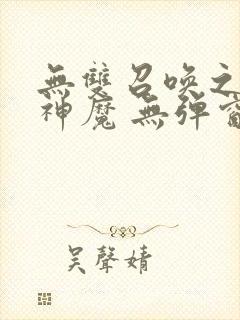 無雙召喚之
神魔 無彈窗
吳聲婧